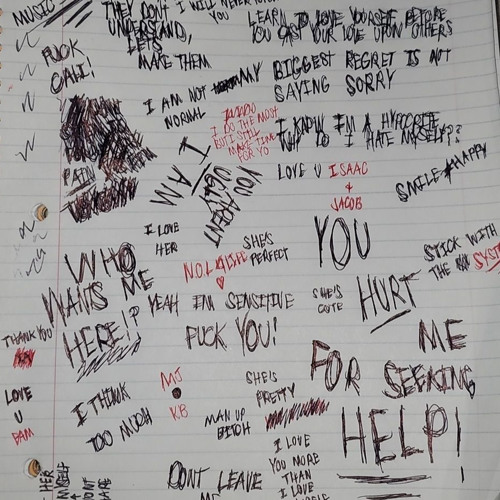 MUSIC
THEY DON'T
UNDERSTAND,
LETS
MAKE THEM
I WILL NEVER
YOU
LEARN TO LOVE YOURSELF BEFORE
YOU CAST YOUR LOVE UPON OTHERS
FUCK
CALI!
MY BIGGEST REGRET IS NOT
SAYING SORRY
I AM NOT
NORMAL
I DO THE MOST
BUT I STILL
MAKE TIME
FOR YO
I KNOW I'M A HYPOCRITE
WHY DO I HATE MYSELF??
PAIN
I AM
YOU ARENT
UGLY
LOVE U ISAAC
+
JACOB
SMILE ≠ HAPPY
I LOVE
HER
SHE'S
PERFECT
YOU
STICK WITH
THE SYST
WHO
WANTS ME
HERE!?
NOL4LIFE
YEAH I'M SENSITIVE
SHE'S
CUTE
HURT
ME
THANK YOU
FUCK YOU!
FOR SEEKING
HELP!
LOVE
U
BAM
I THINK
TOO MUCH
MJ
KB
SHE'S
PRETTY
MAN UP
BITCH
I LOVE
YOU MORE
THAN
I LOVE
DONT LEAVE
ME
HER
MYSELF
DONT